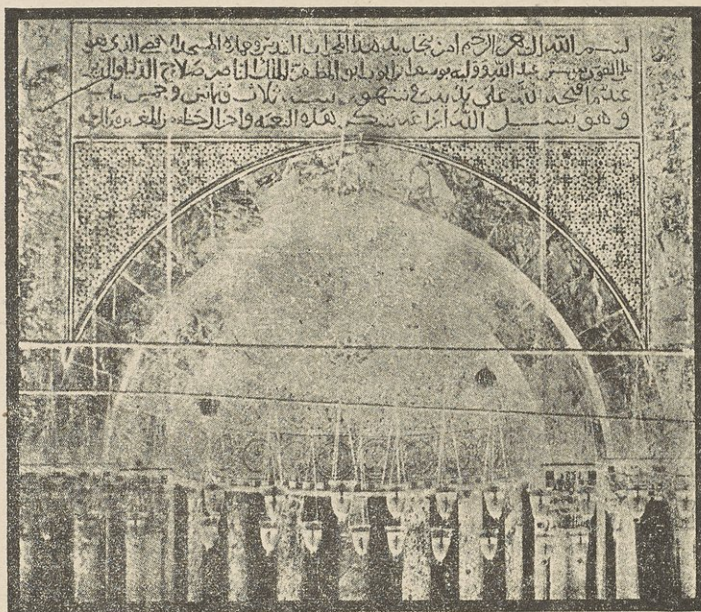 بسم الله الرحمن الرحيم امر بتجديد هذا المحراب المقدس وعمارة المسجد الاقصى الذي هو
على التقوى مؤسس عبد الله ووليه يوسف بن ايوب ابو المظفر الملك الناصر صلاح الدنيا والدين
عندما فتحه الله على يديه في شهور سنة ثلاث وثمانين وخمس مايه
وهو يسل الله ايزاعه شكر هذه النعمه واجزال حظه من المغفره والرحمه